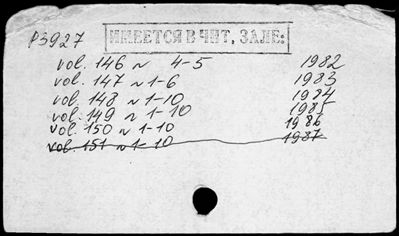 P3927
ИМЕЕТСЯ В ЧИТ, ЗАЛЕ:
vol. 146 N 4-5 1982
vol. 147 N 1-6 1983
vol. 148 N 1-10 1984
vol. 149 N 1-10 1985
vol. 150 N 1-10 1986
vol. 151 N 1-10 1987